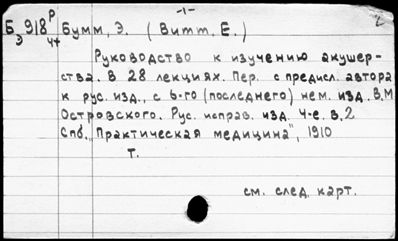 -1-
2
Б 918 Р Бумм, Э. (Витт. Е.)
Э 4+
Руководство к изучению акушер-
ства. В 28 лекциях. Пер. с предисл. автора
к рус. изд., с 6-го (последнего) нем. изд. В.М.
Островского. Рус. исправ. изд. 4-е. В.2
Спб. "Практическая медицина", 1910
т.
см. след. карт.